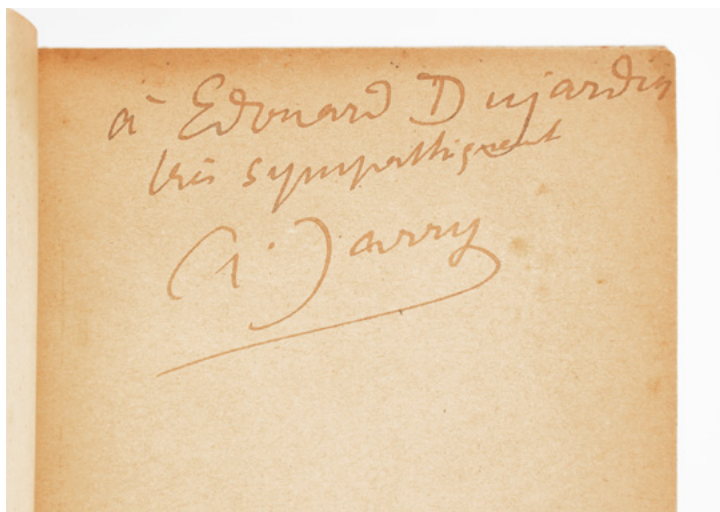 à Edouard Dujardin
très sympathiquement
A. Jarry